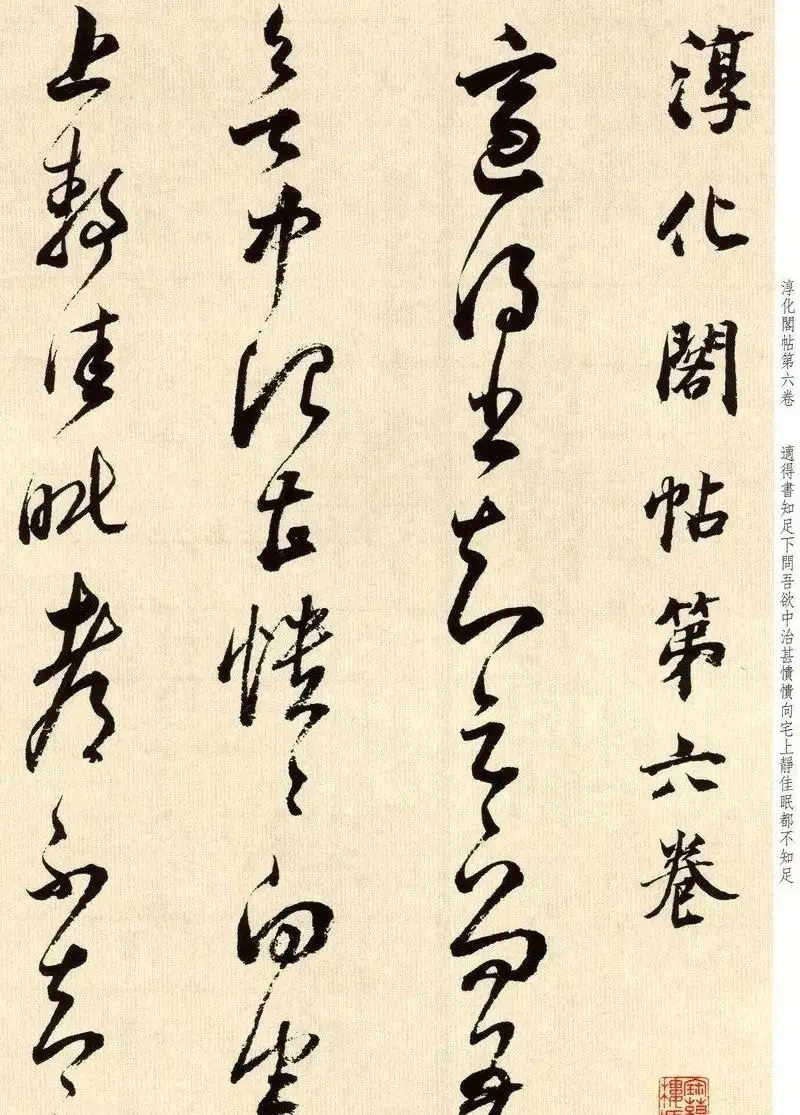 淳化閣帖第六卷　適得書知足下問吾欲中治甚憒憒向宅上靜佳眠都不知足
淳化閣帖第六卷
適得書知足下問吾
欲中治甚憒〻向宅
上靜佳眠都不知足